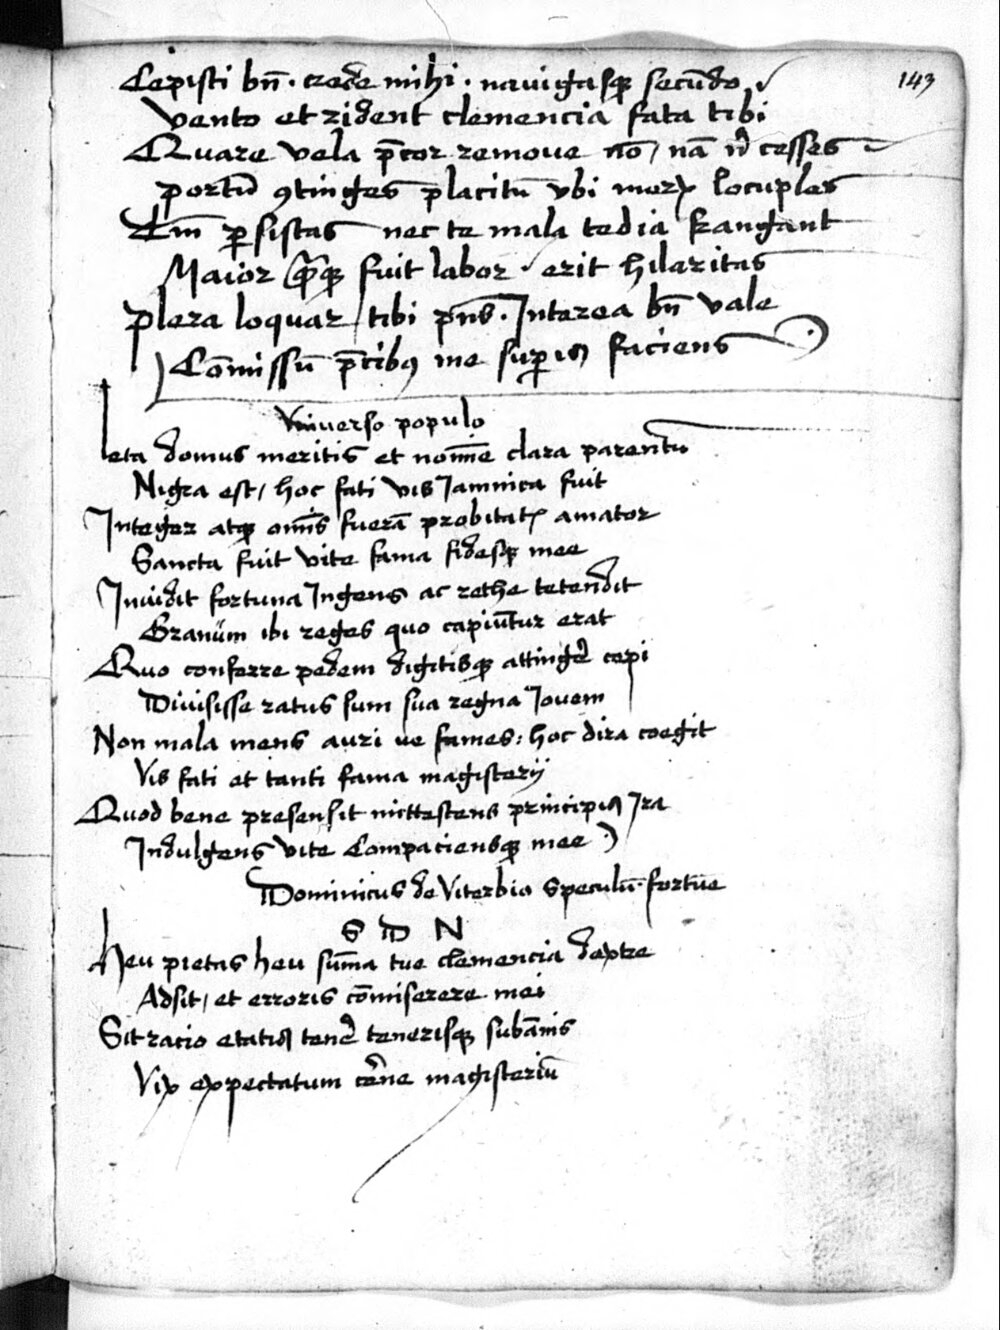 143
Cepisti bn̄ · crede mihi · nauigasq; secūdo
vento et rident clemencia fata tibi
Quare vela p̄cor remoue nō / nā n̄ cesses
portū ꝯtinges placitū vbi merx locuples
Tm̄ ꝑsistas nec te mala tedia frangant
Maior fuit labor · erit hilaritas
plera loquar tibi pn̄s · Interea bn̄ vale
Cōmissū p̄cibꝰ me suꝑis faciens
Vniuerso populo
leta domus meritis et nomīe clara parentū
Nigra est / hoc fati vis Jamnica fuit
Integer atq; om̄is fuerā probitatꝭ amator
Sancta fuit vite fama fidesq; mee
Inuidit fortuna Ingens ac rethe tetendit
Granūm ibi reges quo capiūtur erat
Quo conferre pedem digitisq; attingeꝛ cepi
Diuisisse ratus sum sua regna Iouem
Non mala mens auri ue fames : hoc dira coegit
Vis fati et tanti fama magisterij
Quod bene presensit mittescens principis Ira
Indulgens vite Compaciensq; mee
Dominicus de Viterbio speculū fortūe
S D N
heu pietas heu sūma tue clemencia dextre
Adsit / et erroris cōmiserere mei
Sit racio etatis teneꝛ tenerisq; subānis
Vix expectatum magisteriū